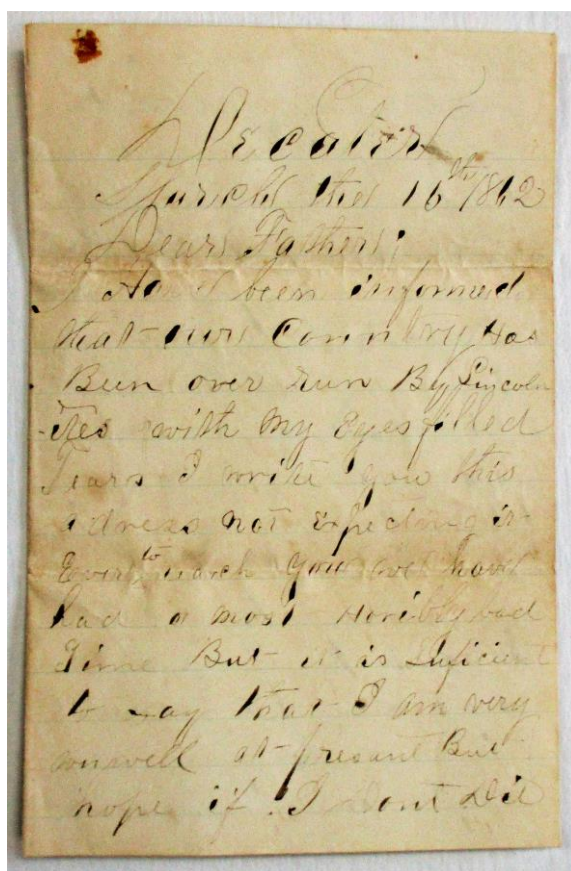 Decater
March the 16th 1862
Dear Father;
I Have been informed
that our Conntry Has
Been over run By Lincoln
-ites with my Eyes filled
Tears I write you this
adress not Expecting it
Ever to reach you we have
had a most Horibly bad
time But it is Suficient
to say that I am very
unwell at present But
hope if I Dont Die